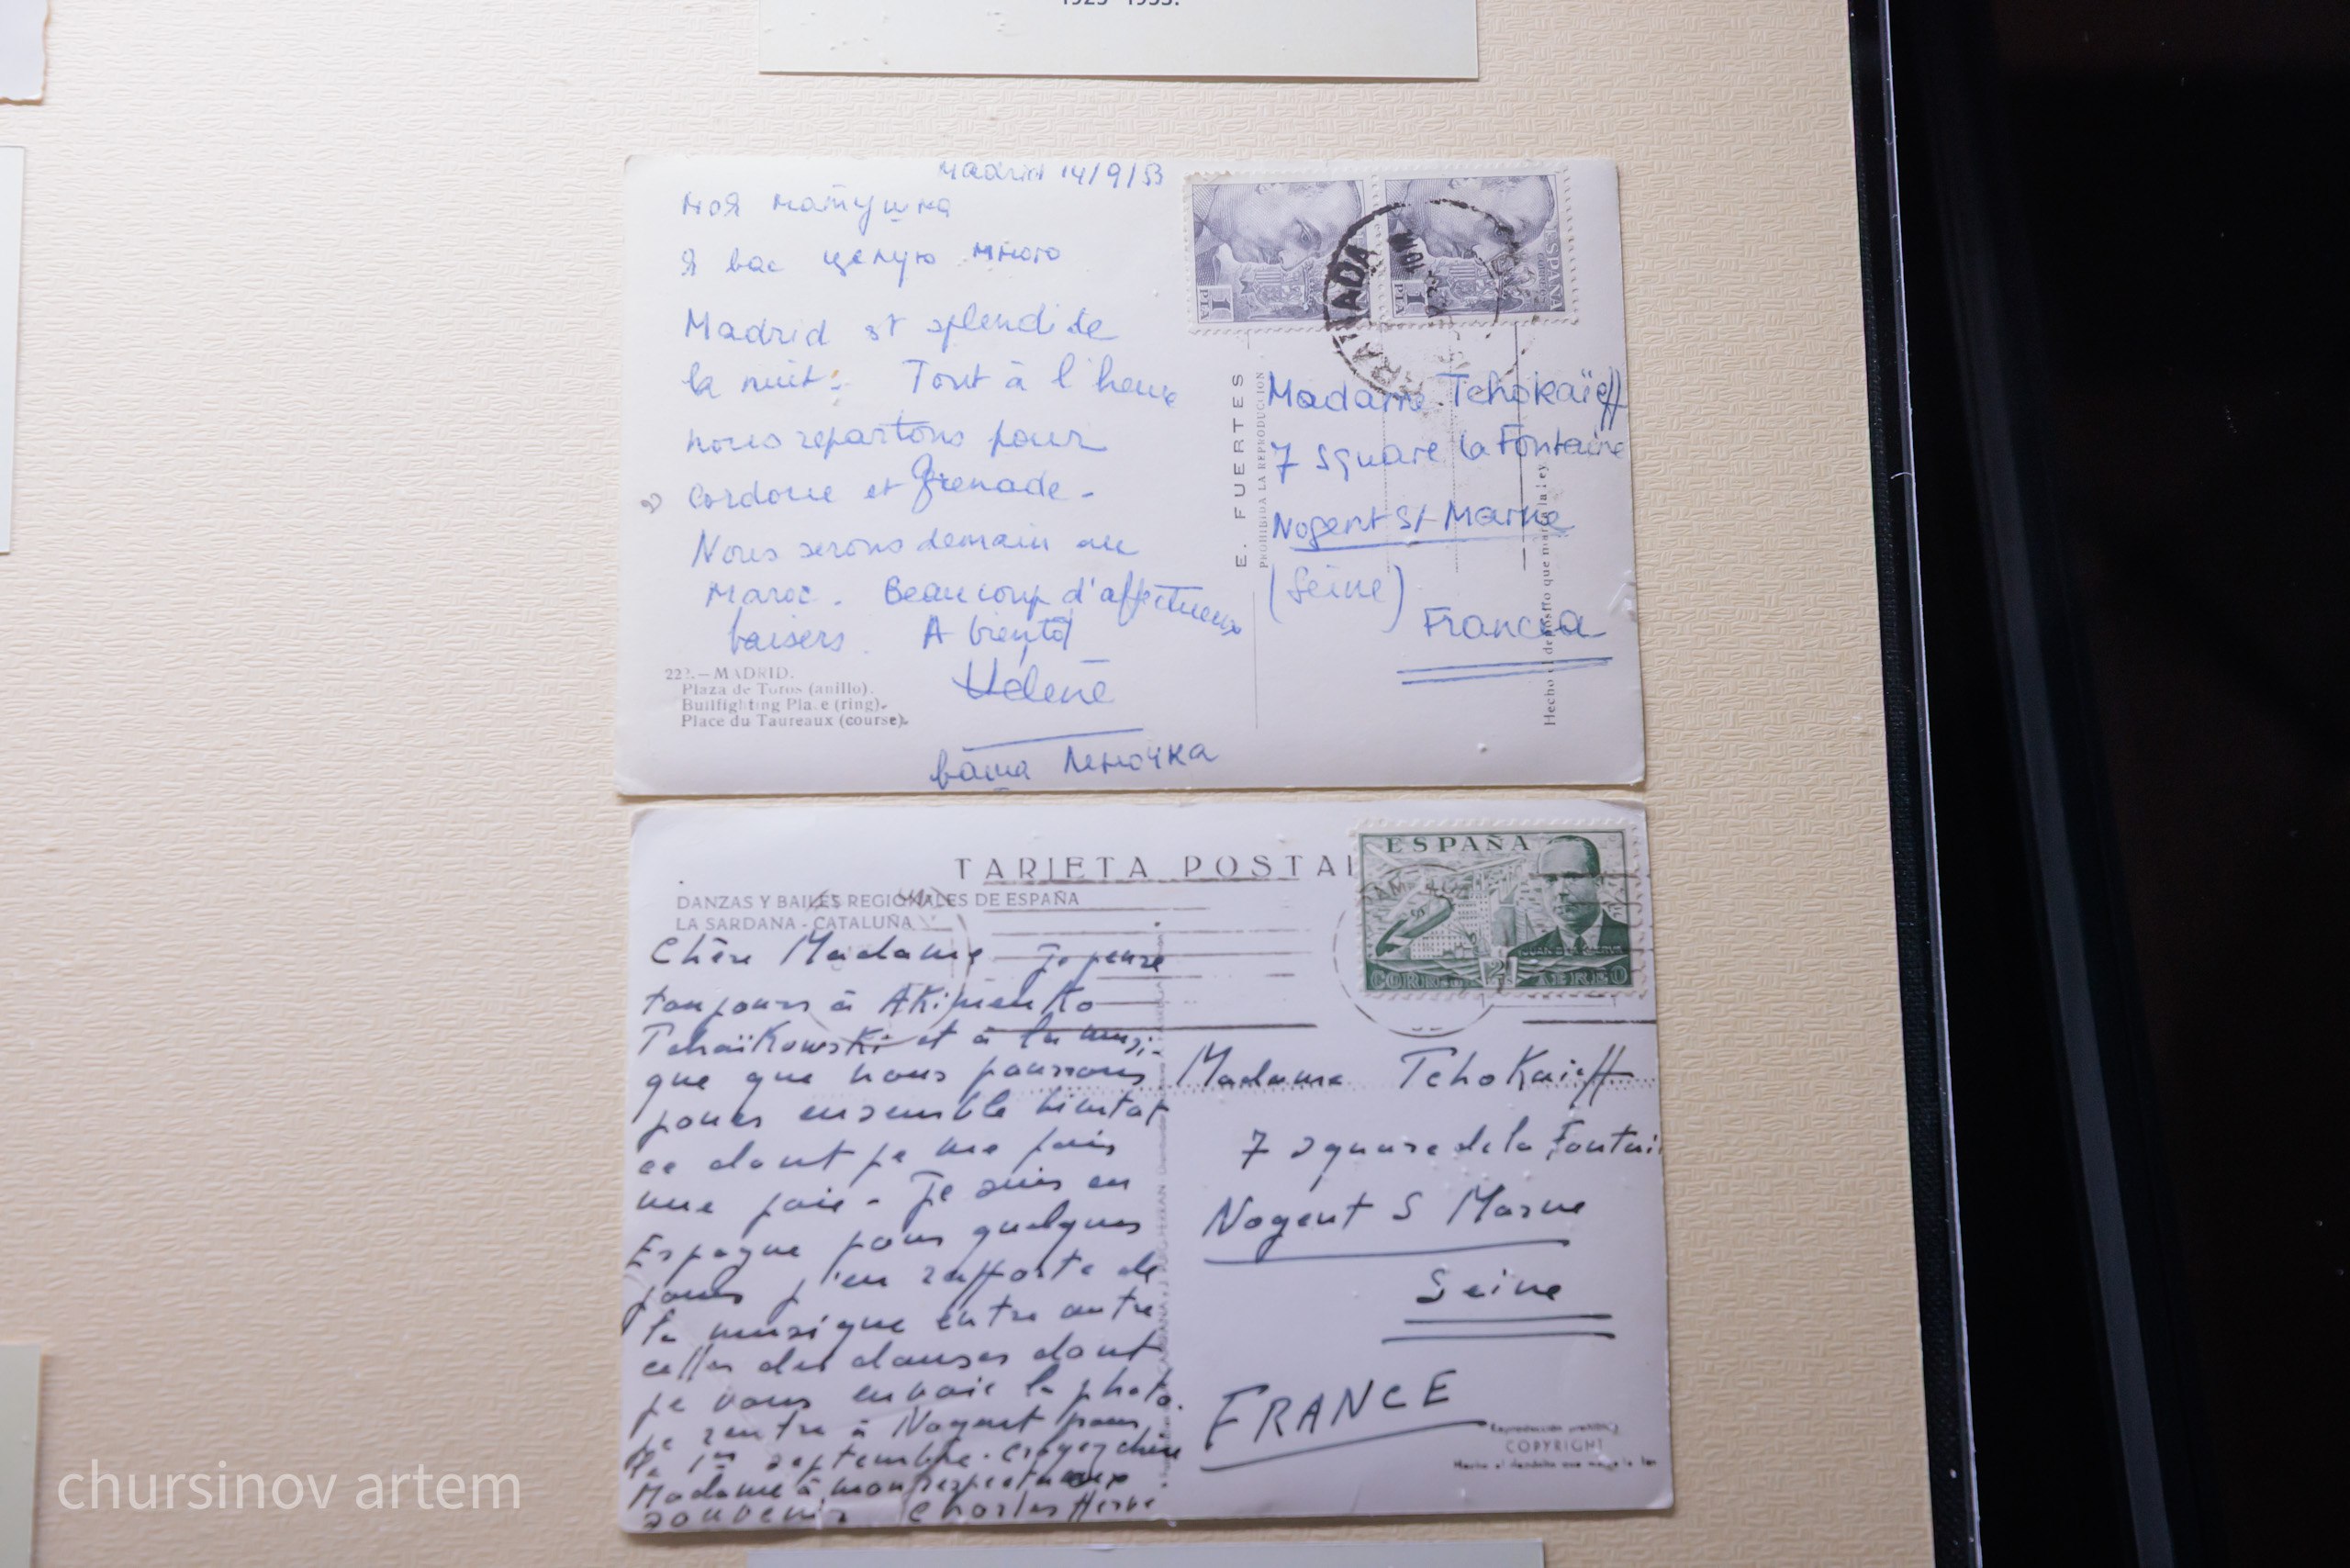 1925–1955.
Madrid 14/9/53
моя матушка
Я вас целую много
Madrid st splendide
la nuit. Tout à l'heure
nous repartons pour
Cordoue et Grenade -
Nous serons demain au
Maroc. Beaucoup d'affectueux
baisers. A bientôt
Hélène
ваша Леночка
222.—MADRID.
Plaza de Toros (anillo).
Bullfighting Place (ring).
Place du Taureaux (course).
E. FUERTES
PROHIBIDA LA REPRODUCCION
1 PTA
1 PTA
ESPAÑA
CORREOS
10M
Madame Tchokaïeff
7 square la Fontaine
Nogent s/ Marne
(Seine)
Francia
Hecho el depósito que marca la ley
TARJETA POSTAL
DANZAS Y BAILES REGIONALES DE ESPAÑA
LA SARDANA - CATALUÑA
ESPAÑA
CORREO AEREO
Chère Madame Je pense
toujours à Akimenko
Tchaïkowski et à la musi-
que que nous pourrons
jouer ensemble bientôt
ce dont je me fais
une joie - Je suis en
Espagne pour quelques
jours j'en rapporte de
la musique entre autre
celles des danses dont
je vous envoie la photo.
Je rentre à Nogent pour
le 1er septembre. Croyez chère
Madame à mon respectueux
souvenir Charles Hervé
Madame Tchokaieff
7 square de la Fontai
Nogent S Marne
Seine
FRANCE
Reproducción prohibida
COPYRIGHT
Hecho el depósito que marca la ley
chursinov artem